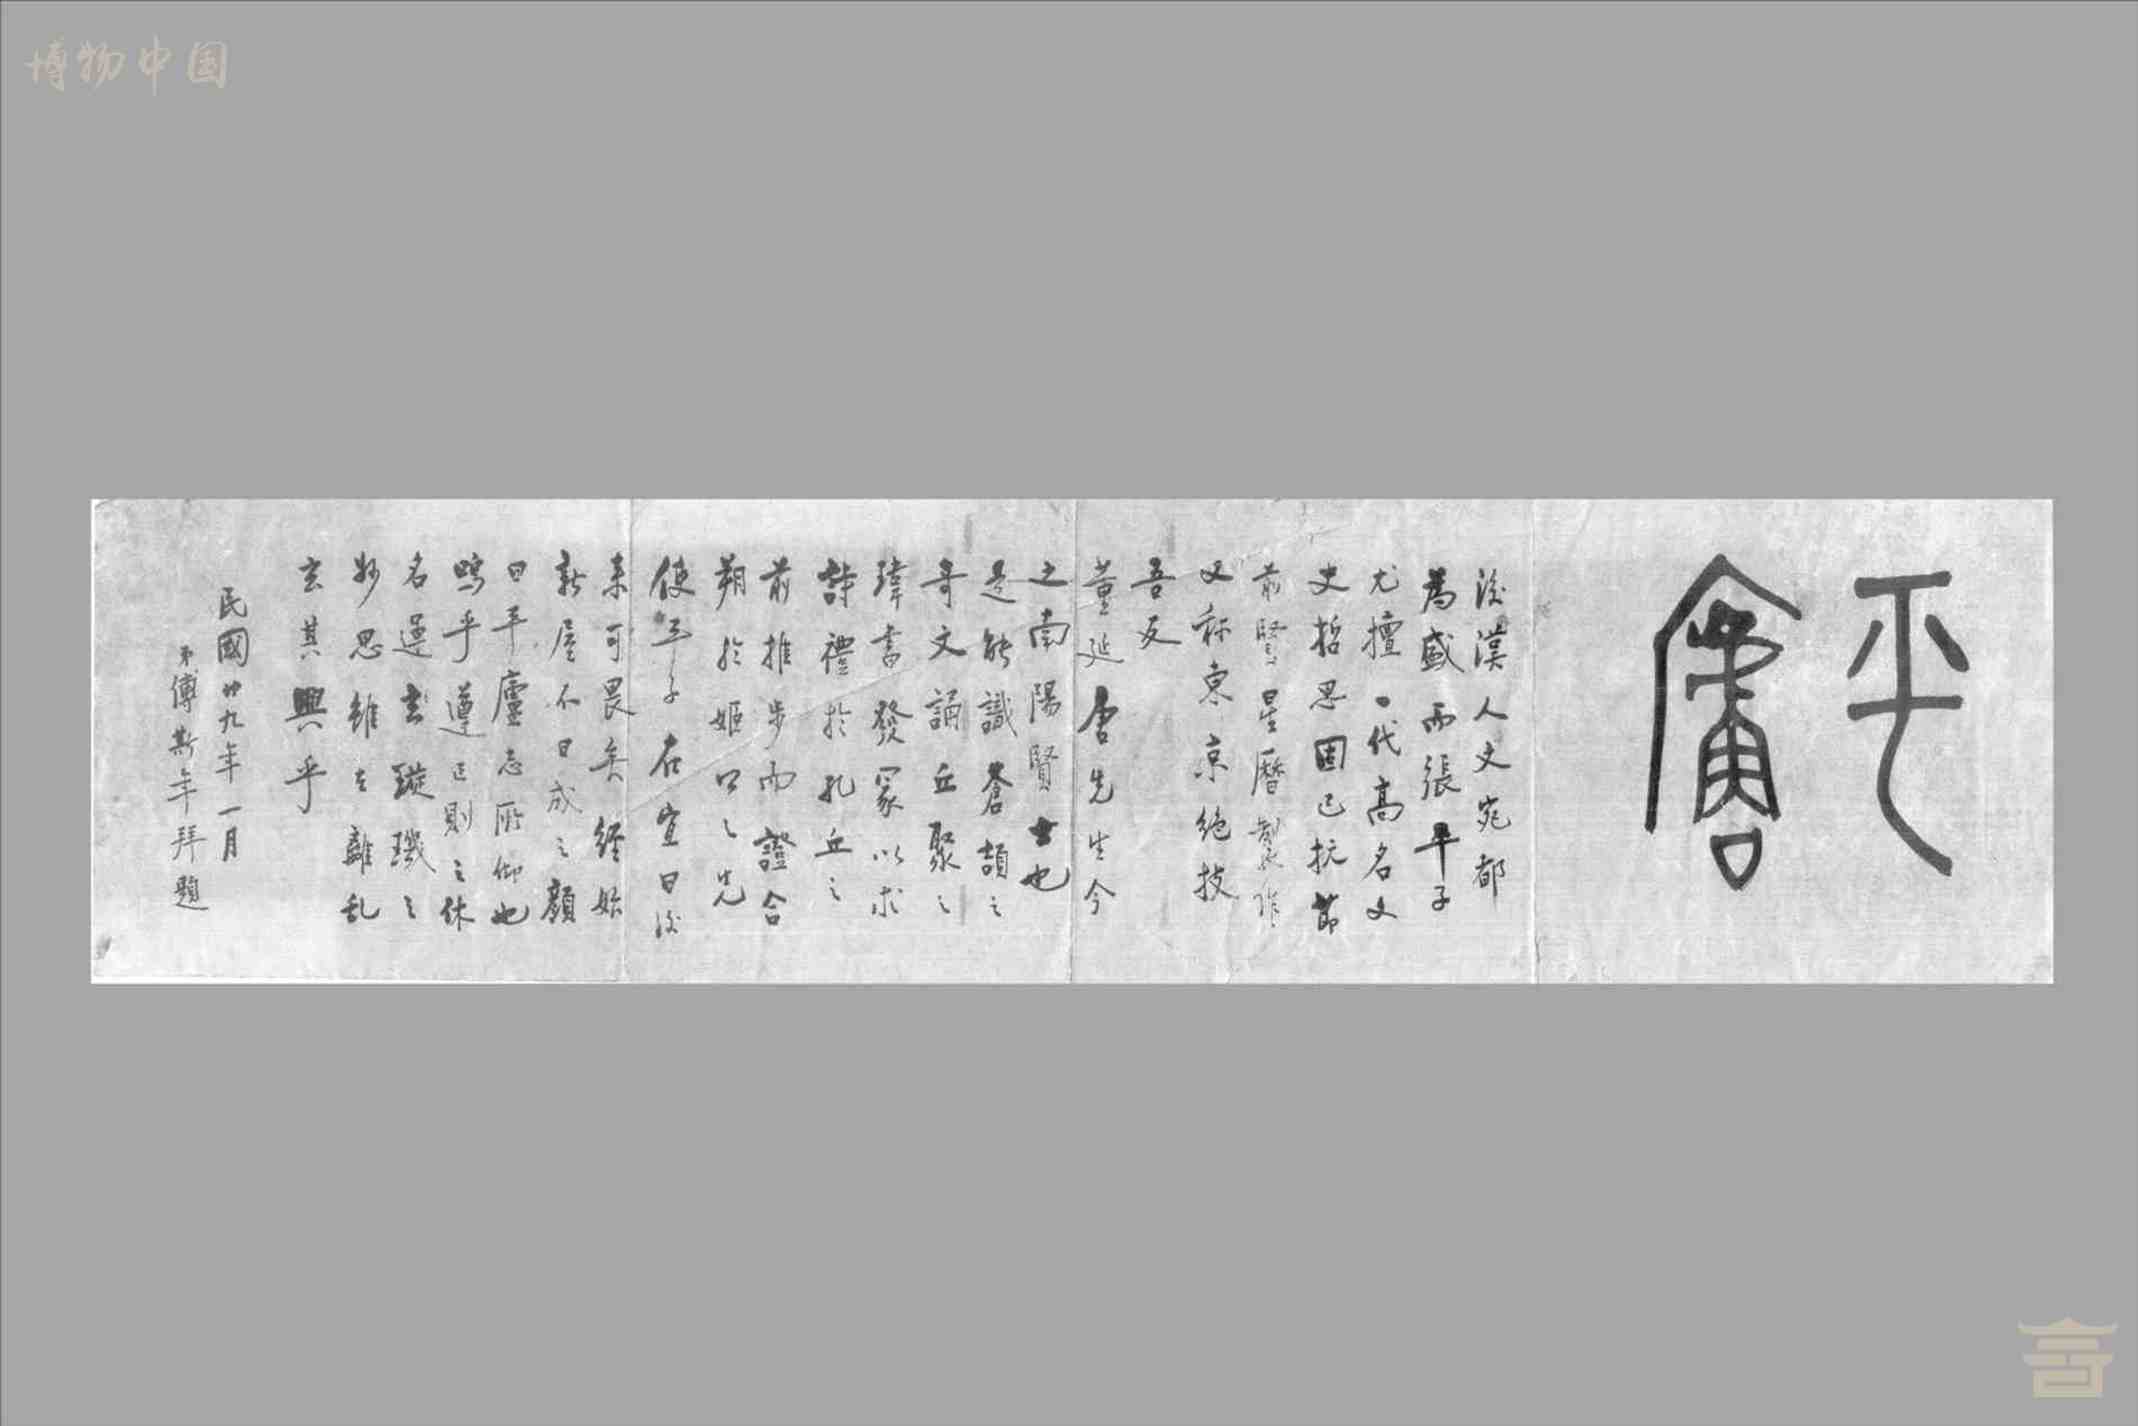 博物中国
平廬
後漢人文宛都
為盛而張平子
尤擅一代高名文
史哲思固已抗節
前賢星曆製作
又称東京絶技
吾友
董延唐先生今
之南陽賢士也
是能識蒼頡之
奇文誦丘聚之
瑋書發冢以求
詩禮於孔丘之
前推步而證合
朔於姬公之先
使平子在宣曰後
来可畏矣經始
新屋不日成之顏
曰平廬志所仰也
嗚乎遵正則之休
名邁璇璣之
妙思維之離乱
玄其興乎
民國廿九年一月
弟傅斯年拜題